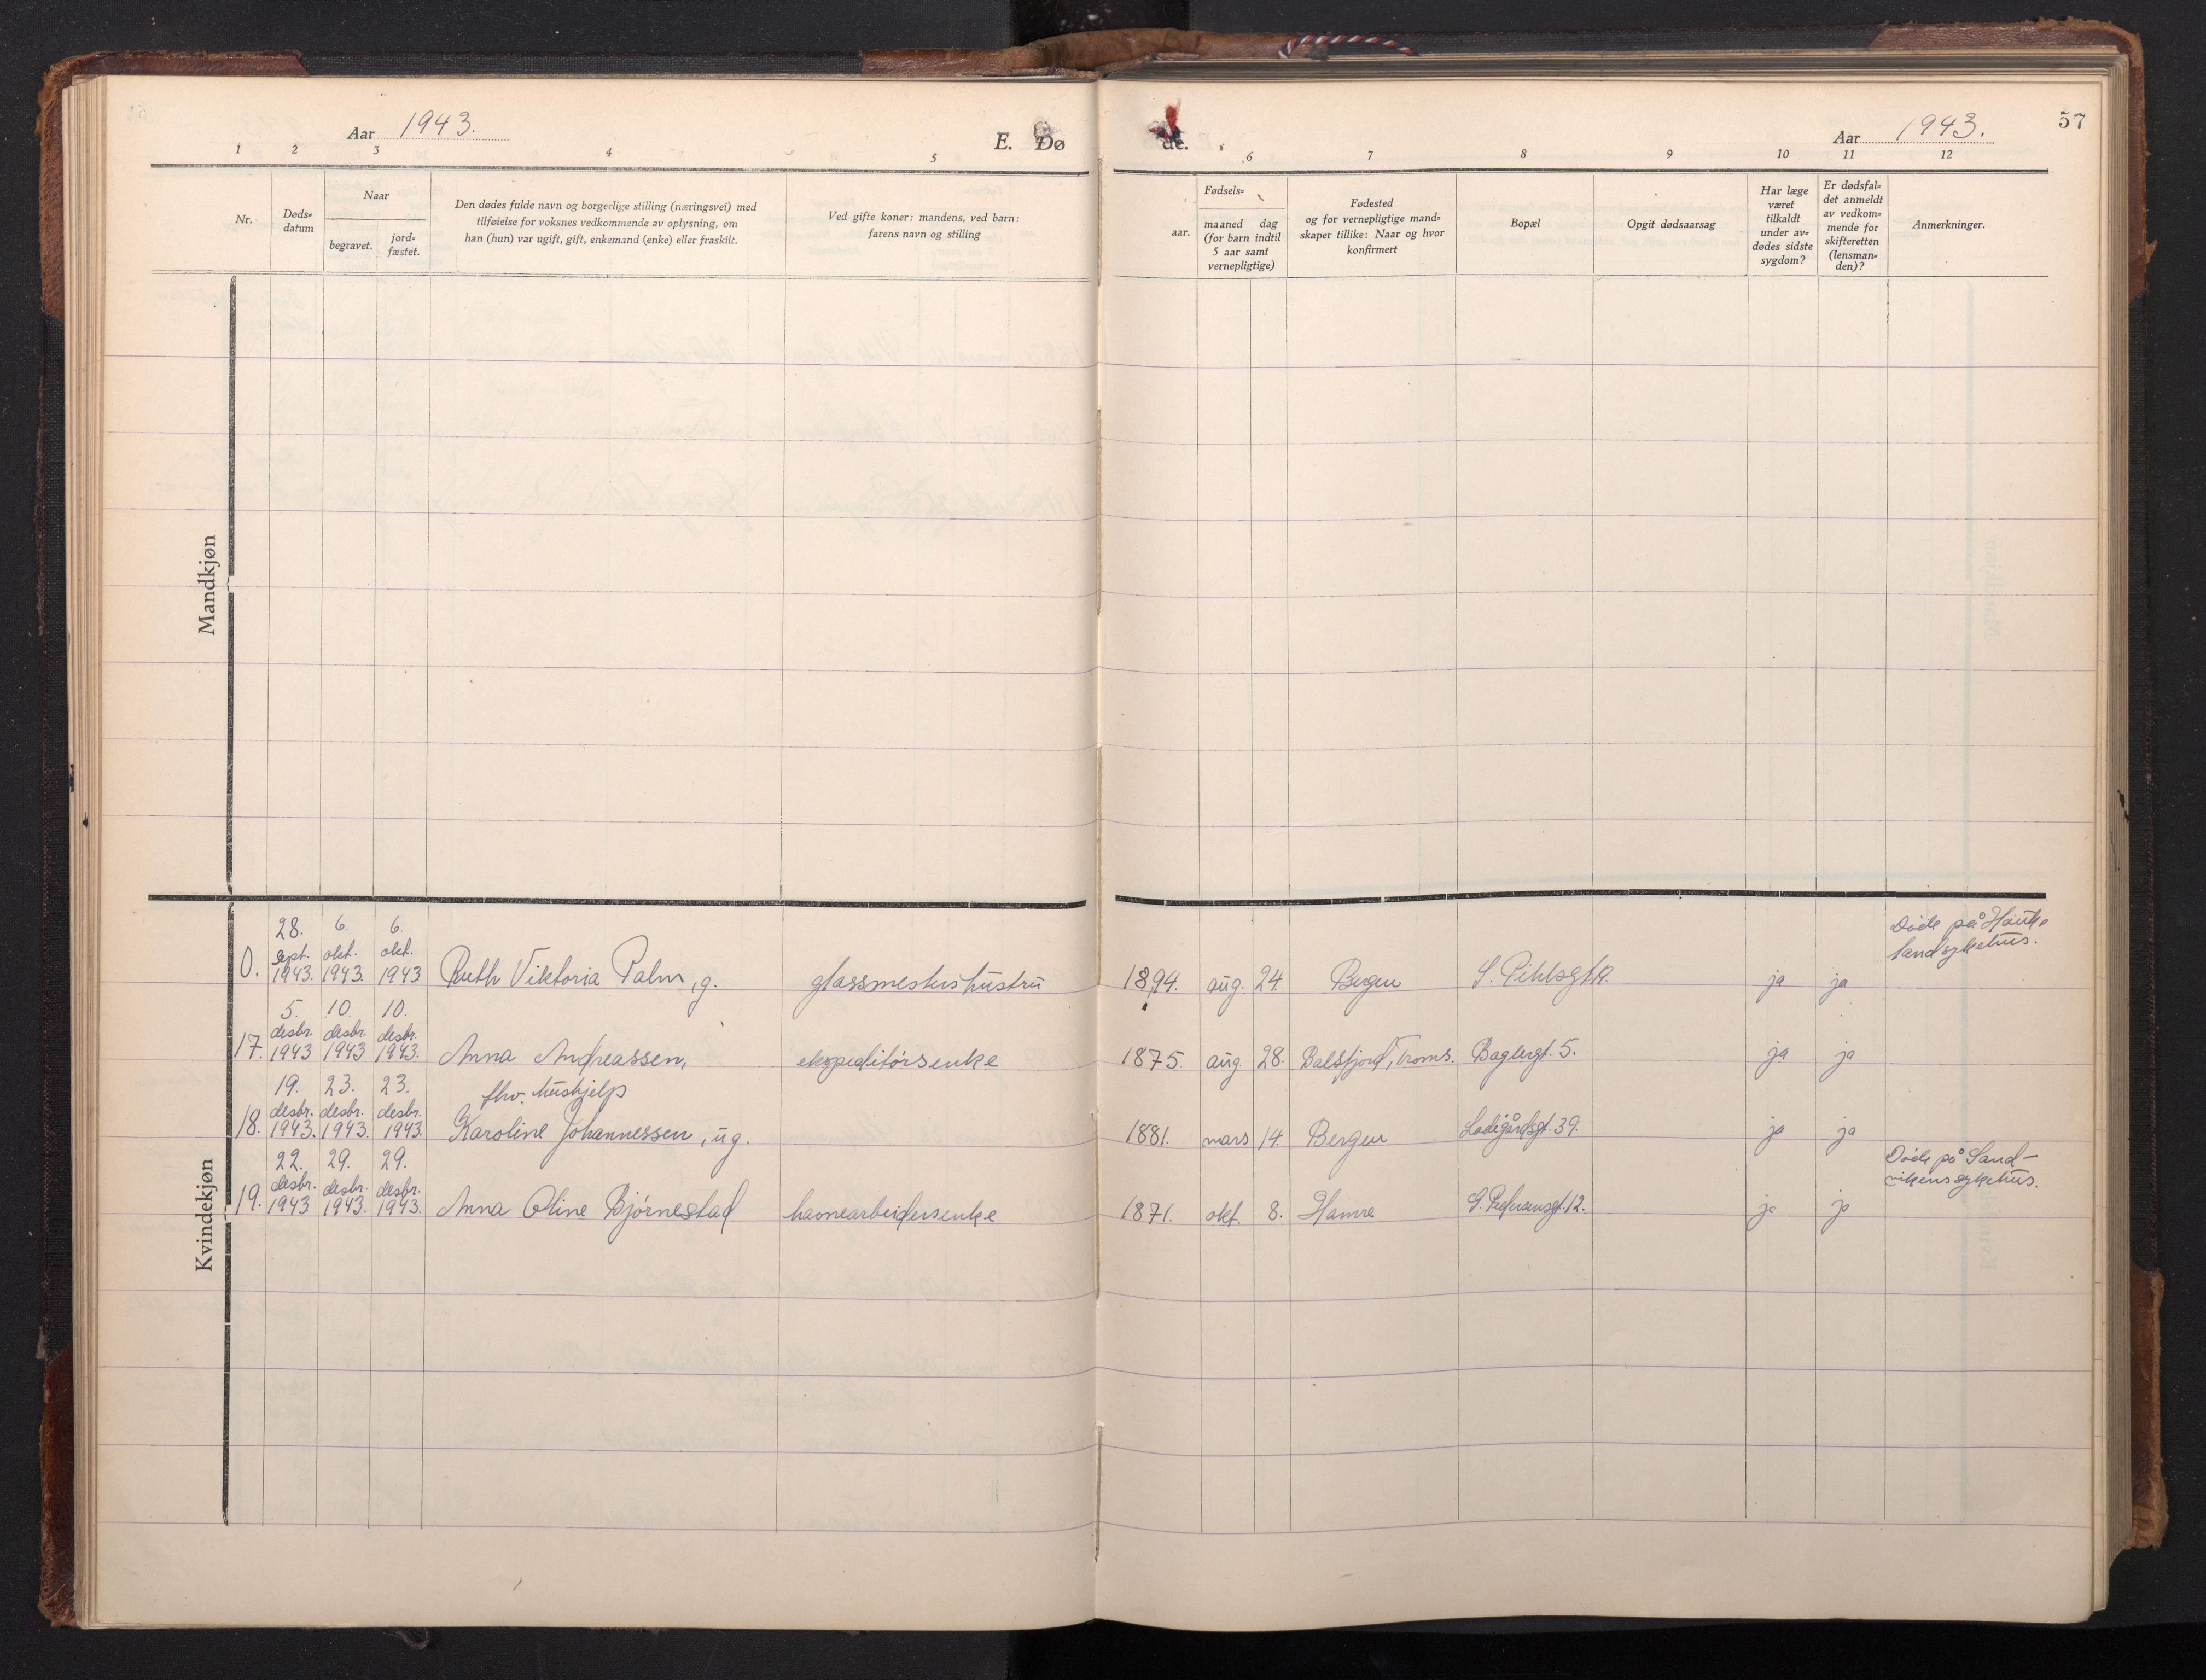 Aar 1943.
E. Dø
de.
Aar 1943.
57
1 2 3 4 5 6 7 8 9 10 11 12
Nr.
Døds-
datum
Naar
begravet.
jord-
fæstet.
Den dødes fulde navn og borgerlige stilling (næringsvei) med
tilføielse for voksnes vedkommende av oplysning, om
han (hun) var ugift, gift, enkemand (enke) eller fraskilt.
Ved gifte koner: mandens, ved barn:
farens navn og stilling
aar.
Fødsels-
maaned dag
(for barn indtil
5 aar samt
vernepligtige)
Fødested
og for vernepligtige mand-
skaper tillike: Naar og hvor
konfirmert
Bopæl
Opgit dødsaarsag
Har læge
været
tilkaldt
under av-
dødes sidste
sygdom?
Er dødsfal-
det anmeldt
av vedkom-
mende for
skifteretten
(lensman-
den)?
Anmerkninger.
Mandkjøn
Kvindekjøn
28. 6. 6.
Døde på Hauke-
sept. okt. okt.
landsykehus.
0. 1943. 1943. 1943 Ruth Viktoria Palm, g. glassmesters hustru 1894. aug. 24. Bergen ja ja
5. 10. 10.
desbr. desbr. desbr.
17. 1943 1943 1943. Anna Andreassen, ekspeditørsenke 1875. aug. 28. Balsfjord, Troms. Baglergt. 5. ja ja
19. 23. 23. fhv. hushjelp
desbr. desbr. desbr.
18. 1943. 1943. 1943. Karoline Johannessen, ug. 1881. mars 14. Bergen Ladegårdsgt. 39. ja ja
22. 29. 29.
Døde på Sand-
desbr. desbr. desbr.
vikens sykehus.
19. 1943 1943. 1943. Anna Oline Bjørnestad havnearbeidersenke 1871. okt. 8. Hamre 12. ja ja